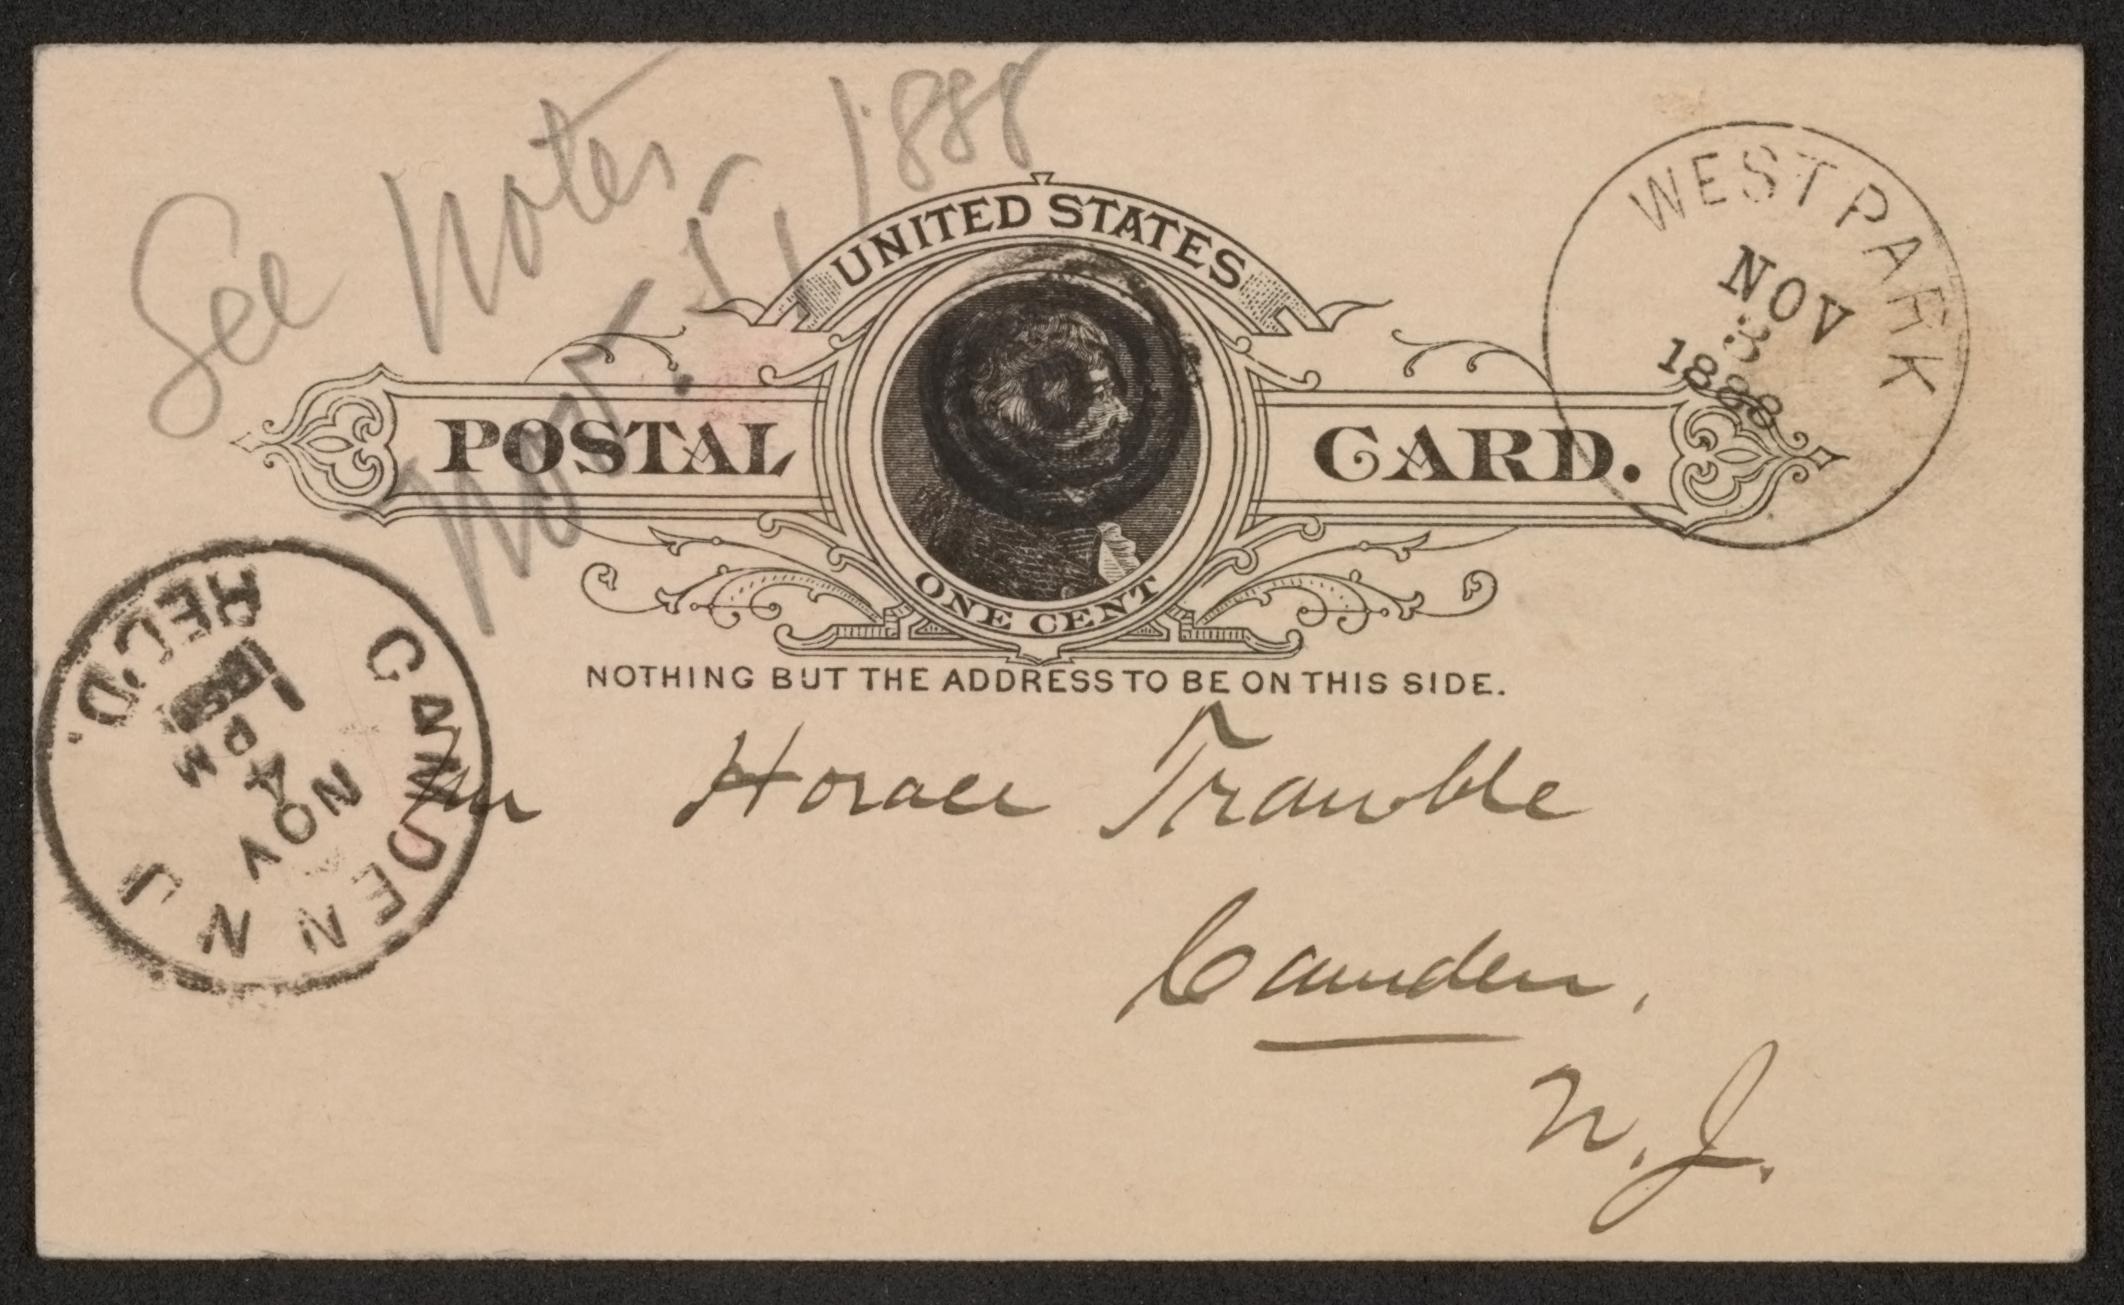 See notes
Nov. 5, 1888
UNITED STATES
POSTAL CARD.
ONE CENT
NOTHING BUT THE ADDRESS TO BE ON THIS SIDE.
WEST PARK
NOV
3
1888
CAMDEN N J
REC'D.
NOV
4
1 PM
Mr Horace Traubel
Camden,
N. J.